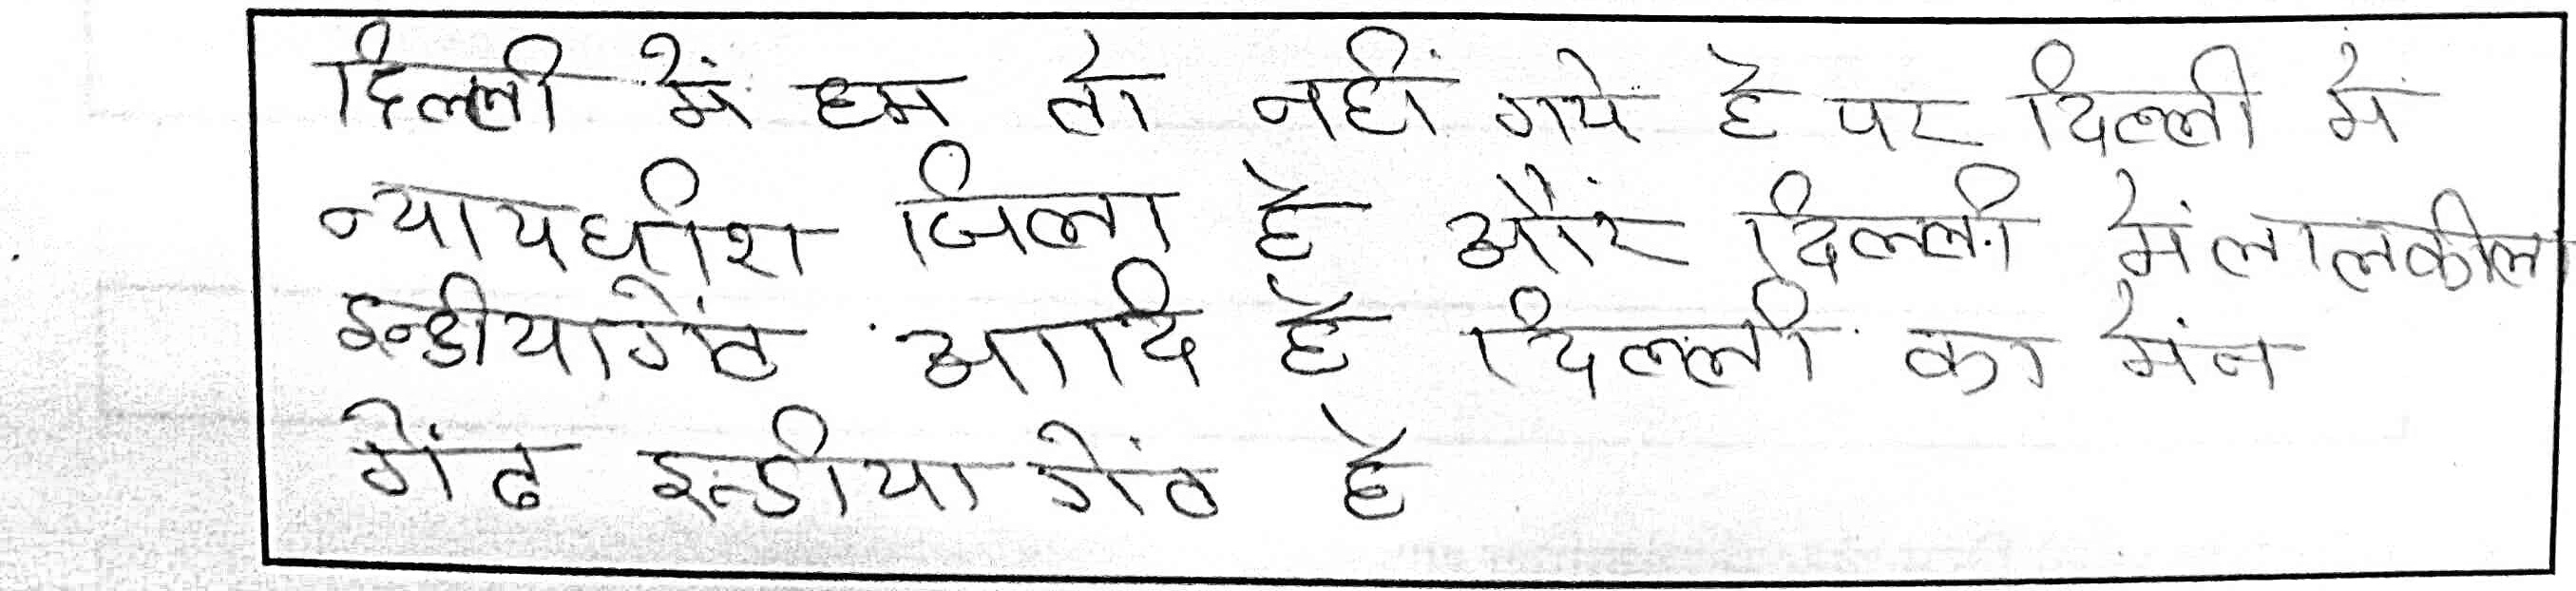 दिल्ली में हम तो नहीं गये है पर दिल्ली में
न्यायधीश जिला है और दिल्ली में लालकीला
इन्डीयागेंट आदि है दिल्ली का मेंन
गेंट इन्डीया गेंट है